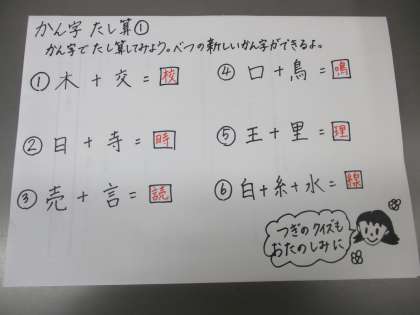 かん字 たし算①
かん字で たし算してみよう。べつの新しいかん字ができるよ。
① 木 + 交 = 校
② 日 + 寺 = 時
③ 売 + 言 = 読
④ 口 + 鳥 = 鳴
⑤ 王 + 里 = 理
⑥ 白 + 糸 + 水 = 線
つぎの クイズも
おたのしみに